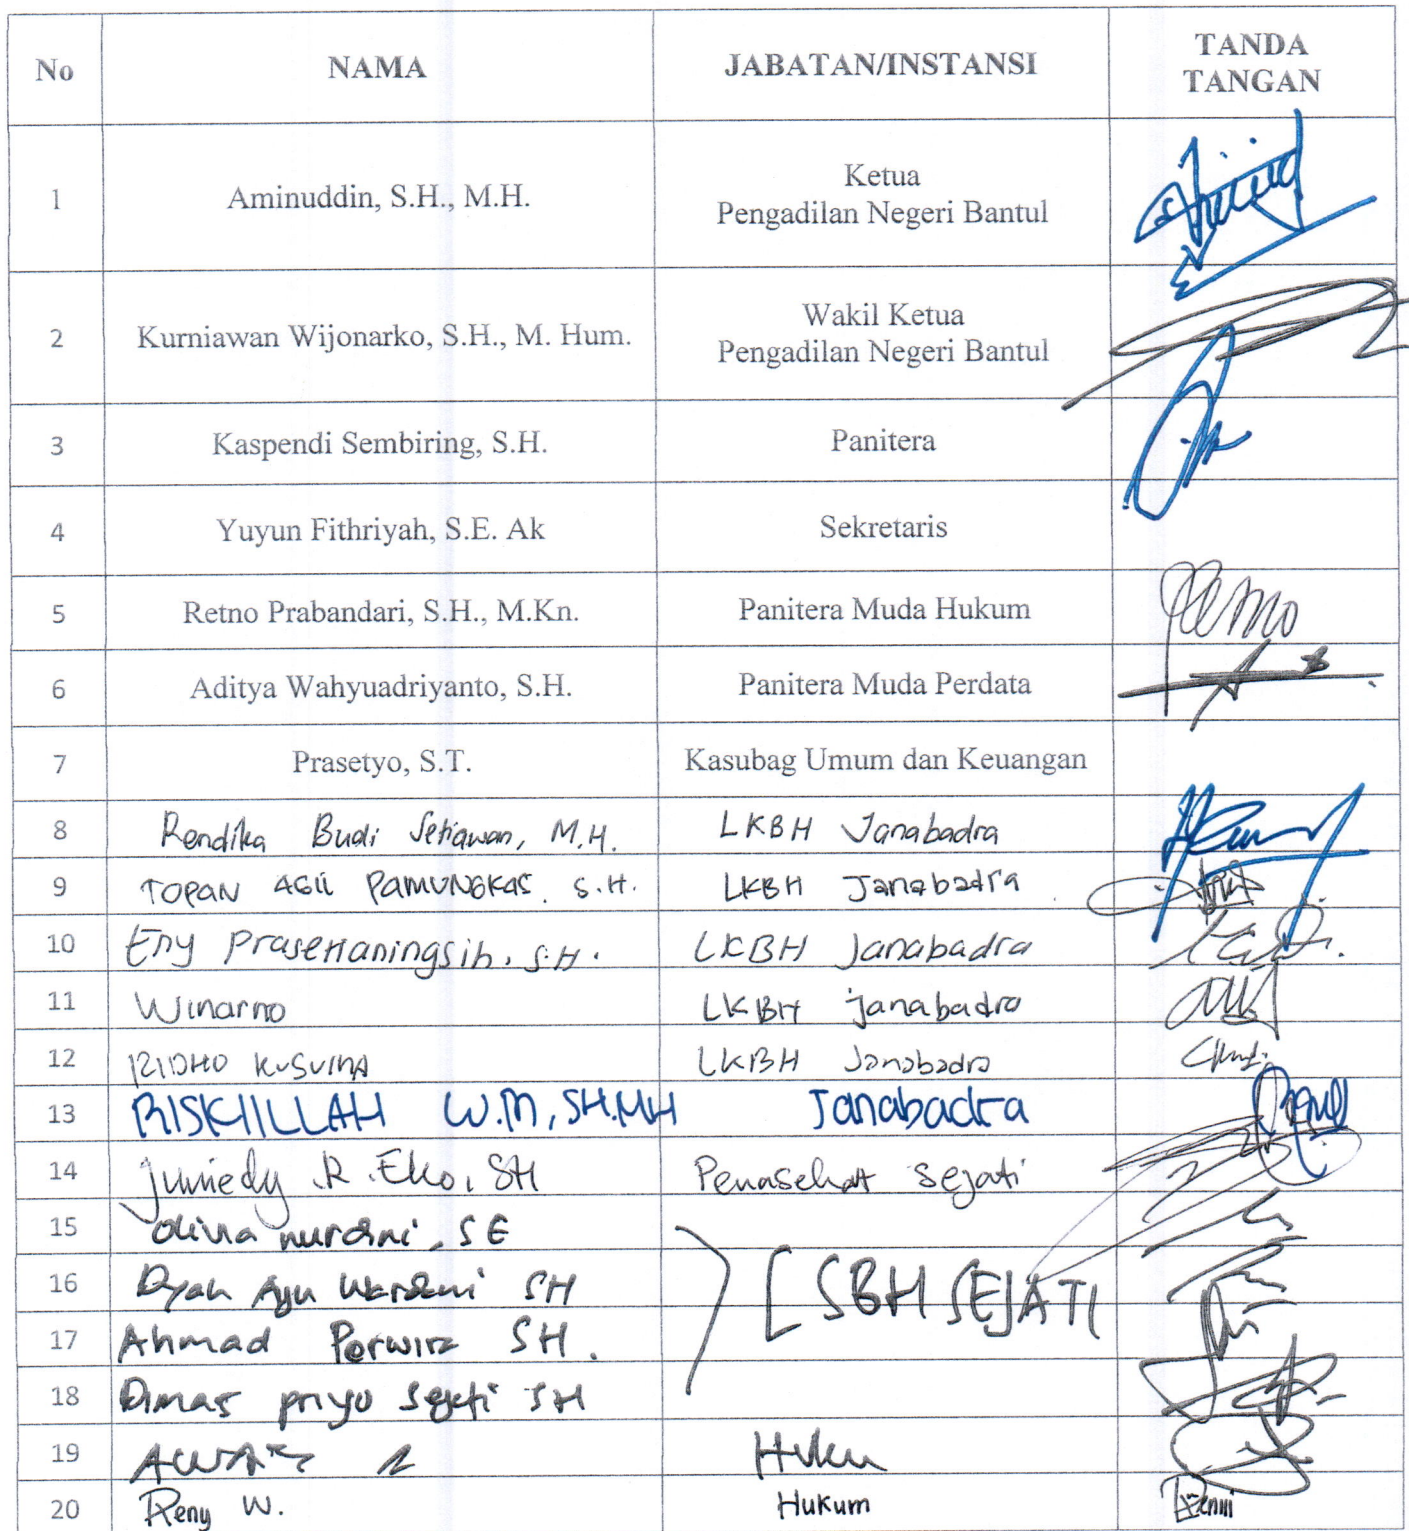 No NAMA JABATAN/INSTANSI TANDA
TANGAN
1 Aminuddin, S.H., M.H. Ketua
Pengadilan Negeri Bantul
2 Kurniawan Wijonarko, S.H., M. Hum. Wakil Ketua
Pengadilan Negeri Bantul
3 Kaspendi Sembiring, S.H. Panitera
4 Yuyun Fithriyah, S.E. Ak Sekretaris
5 Retno Prabandari, S.H., M.Kn. Panitera Muda Hukum
6 Aditya Wahyuadriyanto, S.H. Panitera Muda Perdata
7 Prasetyo, S.T. Kasubag Umum dan Keuangan
8 Rendika Budi Setiawan, M.H. LKBH Janabadra
9 TOPAN AGIL PAMUNGKAS S.H. LKBH Janabadra
10 Eny Prasetianingsih, S.H. LKBH Janabadra
11 Winarno LKBH janabadra
12 RIDHO KUSUMA LKBH Janabadra
13 RISKHILLAH W.M, SH.MH Janabadra
14 R. Eko, SH Penasehat Sejati
15 Olivia nurdini, SE
16 Dyah Ayu Wardani SH SBH SEJATI
17 Ahmad Perwira SH.
18 Dimas priyo Sejati SH
19
20 Reny W. Hukum